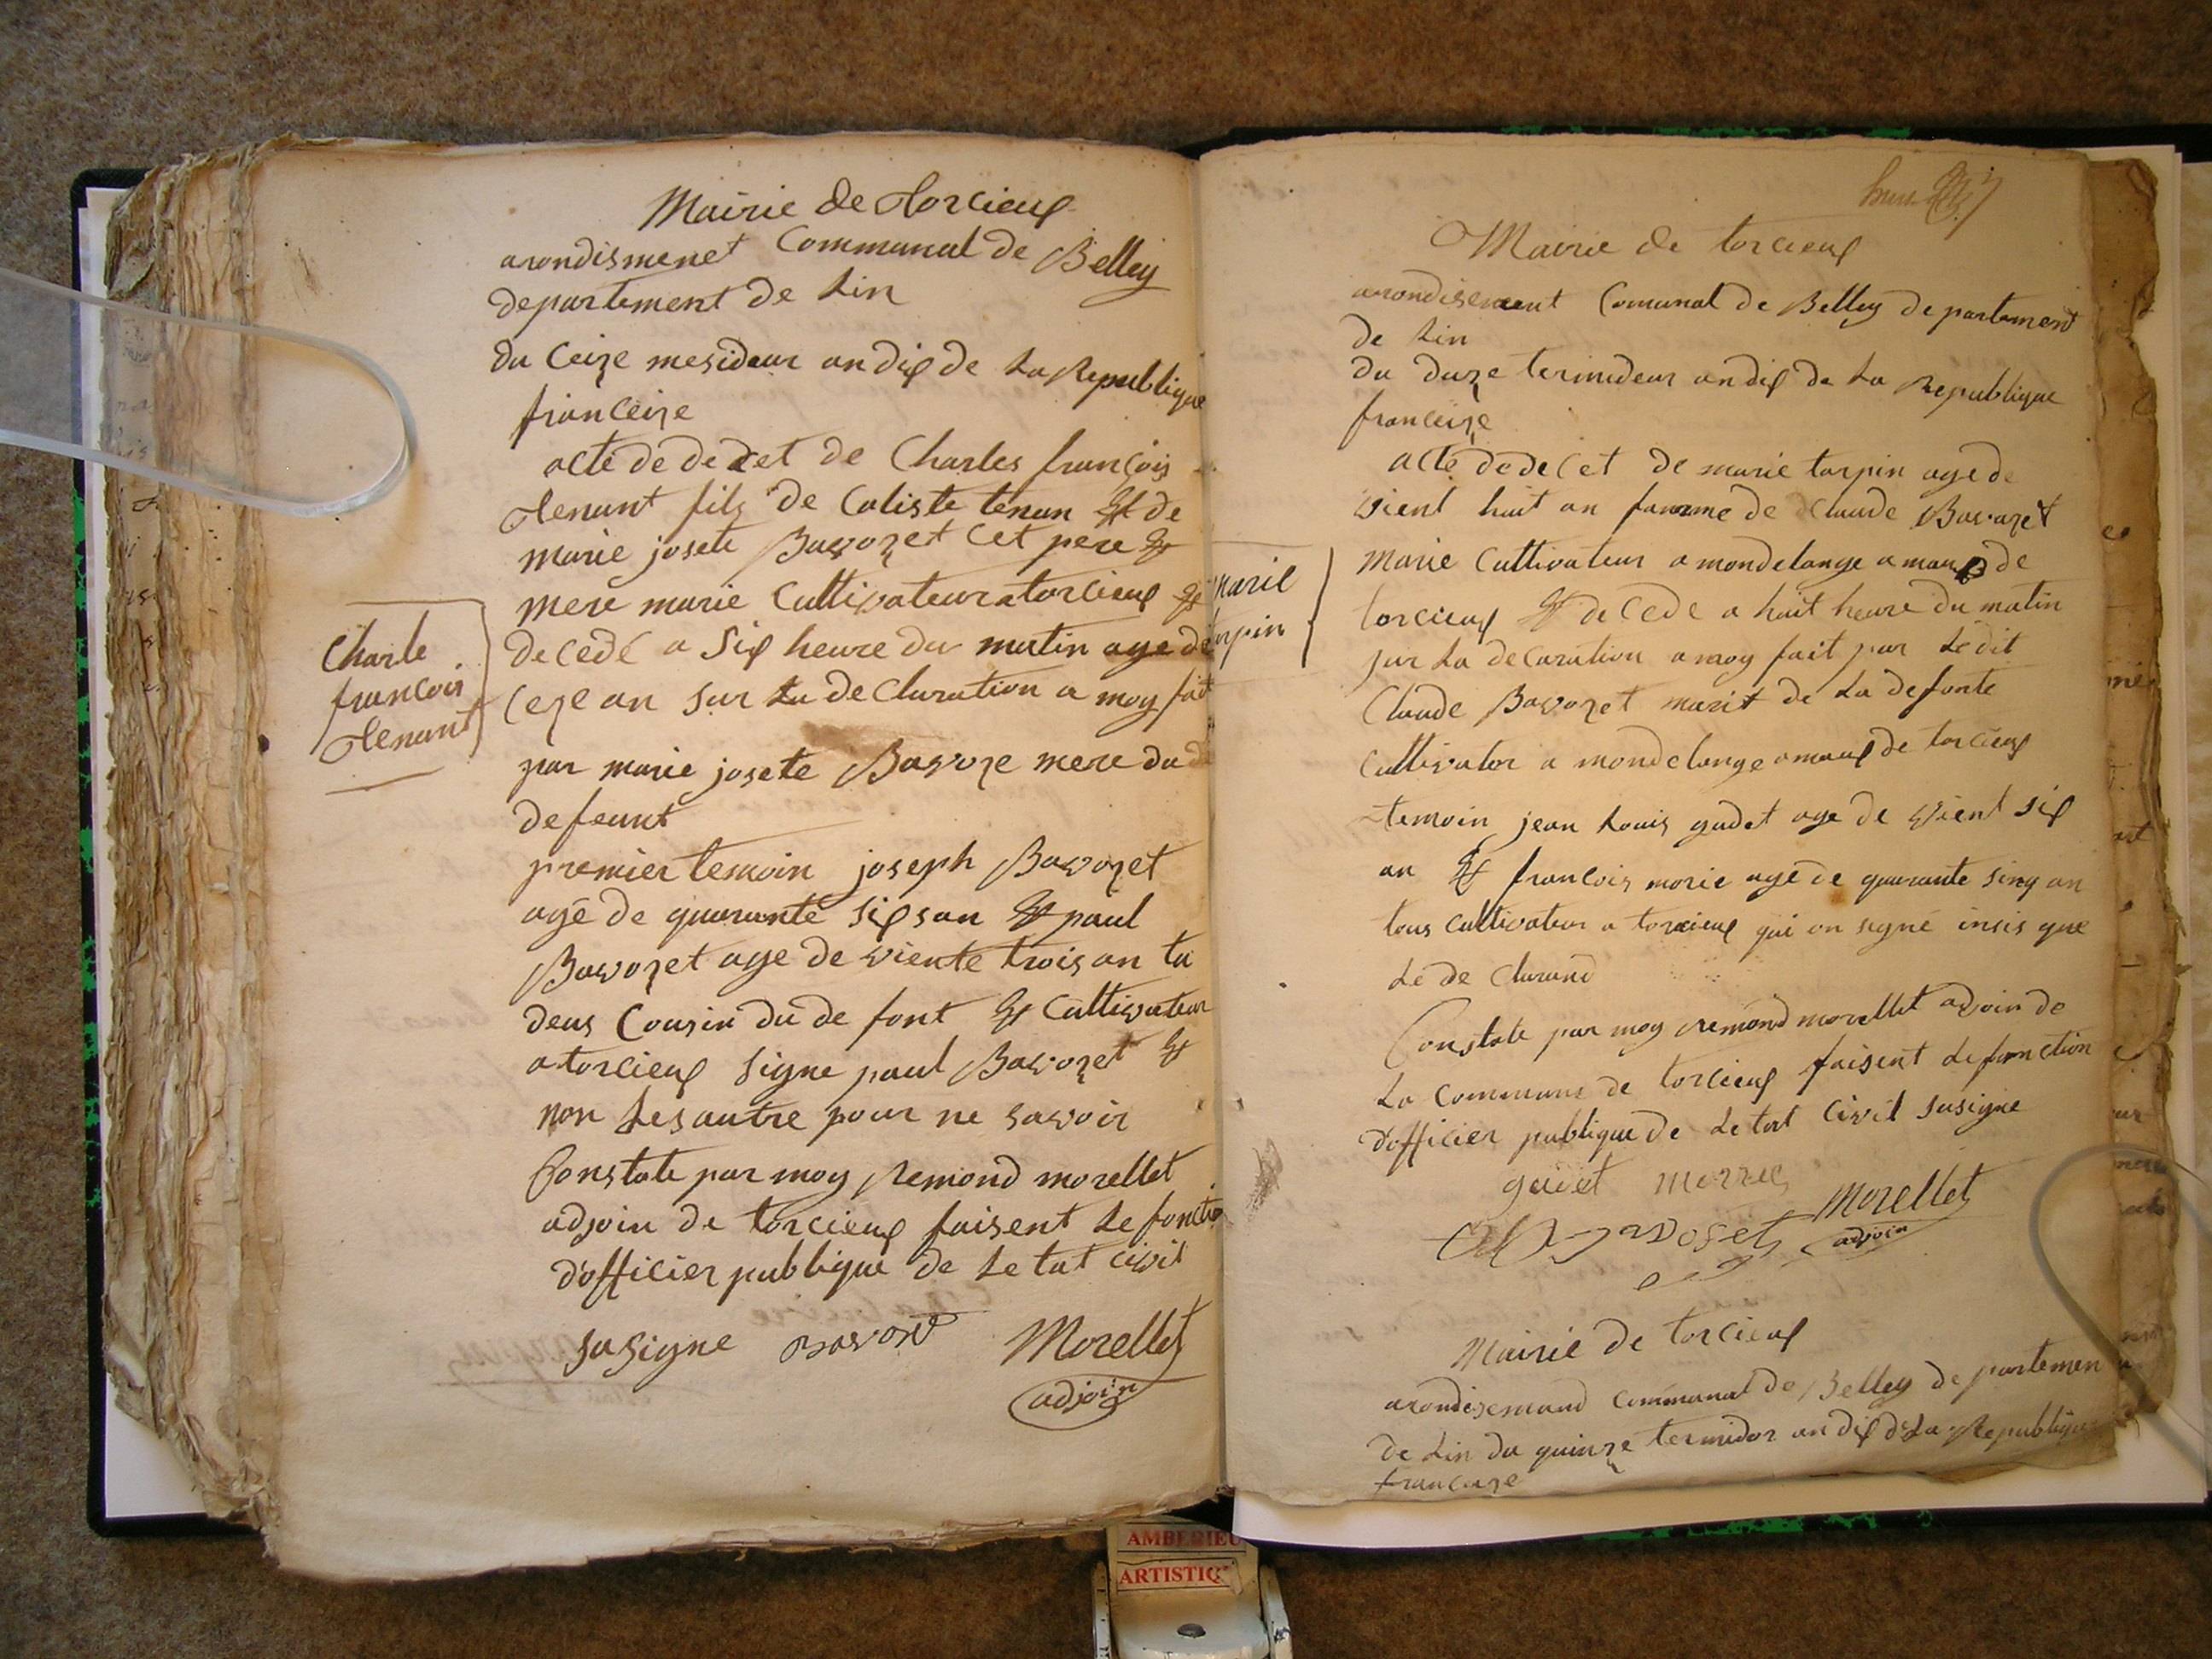 Mairie de torcieux
arondismenet Communal de Belley
departement de Lin
du Ceize mesideur an dix de La Republique
franceize
acte de decet de Charles françois
tenant fils de Caliste tenan Et de
marie josete Bavozet Cet pere Et
mere marie Cultivateur a torcieux Et
decedé a Six heure du matin age de
Ceze an sur La declaration a moy fait
par marie josete Bavoze mere du
defeunt
premier temoin joseph Bavozet
age de quarante six san Et paul
Bavozet age de viente trois an tu
deux Cousin du de font Et Cultivateur
a torcieux signe paul Bavozet Et
non Les autre pour ne savoir
Constate par moy Remond morellet
adjoin de torcieux faisent Le fonctio
d'officier publique de Le tat civil
susigne Bavozet Morellet
adjoin
Charle
francois
tenant
Mairie de torcieux
arondisement Comunal de Belley departement
de Lin
du duze termideur an dix de La Republique
franceize
acte dedecet de marie tarpin age de
vient huit an famme de Claude Bavozet
Marie Cultivateur a mondelange amaux de
torcieux Et decede a huit heure du matin
sur La decaration a moy fait par Ledit
Claude Bavozet marit de La defonte
Cultivator a mondelange amaux de torcieux
temoin jean Louis gudet age de vient six
an Et francois morie age de quarante sinq an
tous cultivateur a torcieux qui on signe insis que
Le de Clarand
Constate par moy remond morellet adjoin de
La Commune de torcieux faisent Le fonction
d'officier publique de Le tat Civil susigne
Morellet
adjoin
marie
tarpin
Mairie de torcieux
arondisemand communal de Belley departemen
de Lin du quinze termidor an dix de La Republique
francaize
AMBERIEU
ARTISTIQ